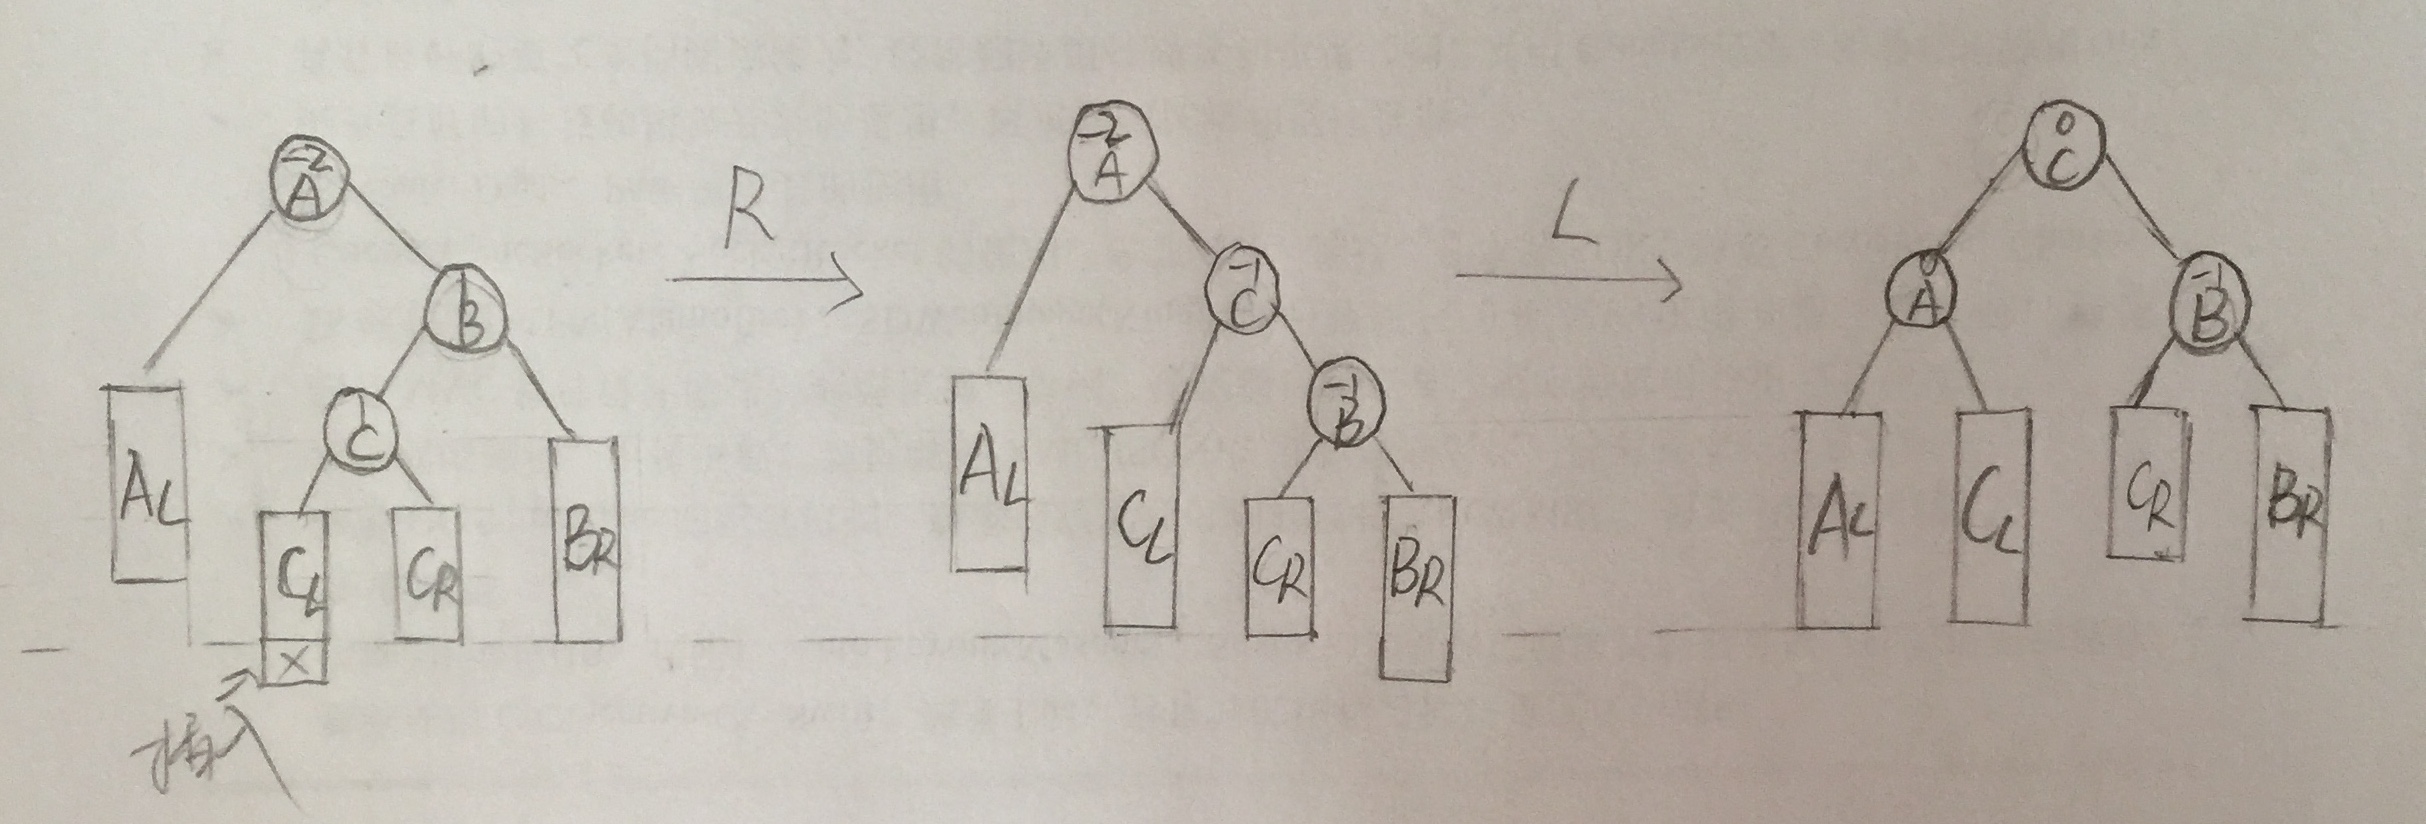 -2
A
1
B
1
C
AL
CL
CR
BR
×
插入
R
-2
A
-1
C
-1
B
AL
CL
CR
BR
L
0
C
0
A
-1
B
AL
CL
CR
BR